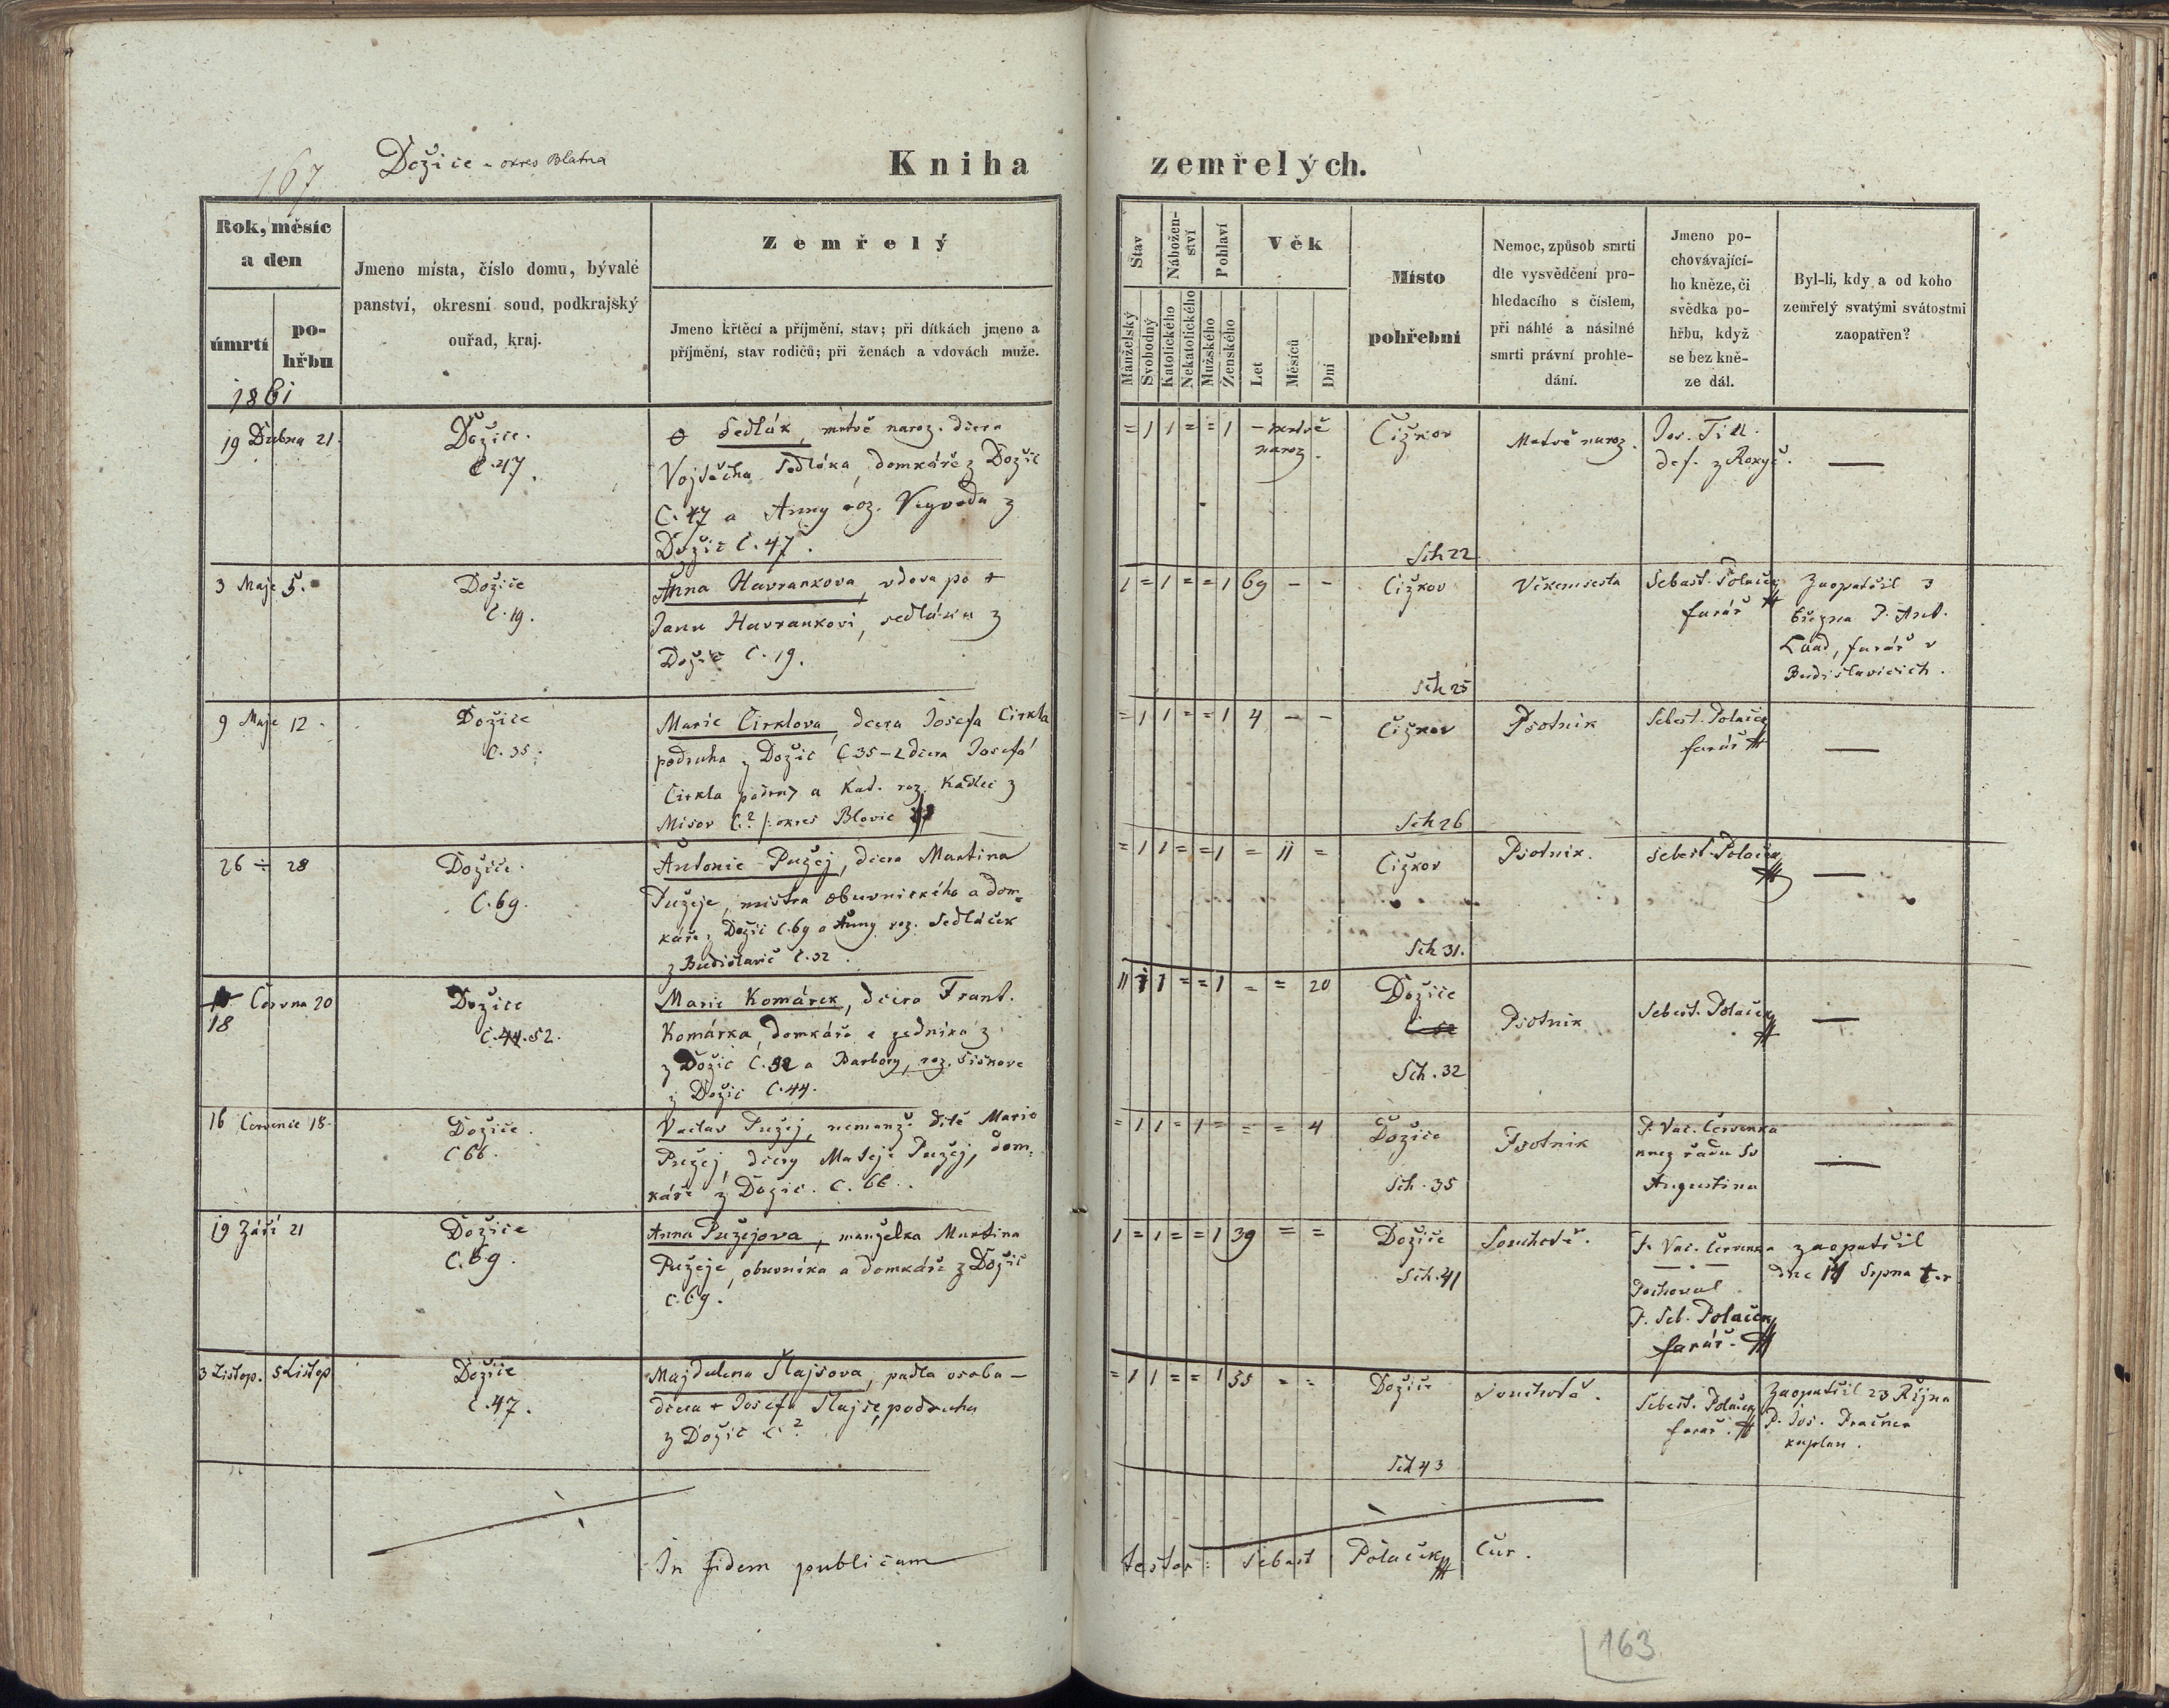 167
Dožice - okres Blatna
Kniha zemřelých.
Rok, měsíc
a den
úmrtí
po-
hřbu
Jmeno místa, číslo domu, bývalé
panství, okresní soud, podkrajský
ouřad, kraj.
Zemřelý
Jmeno křtěcí a příjmění, stav; při dítkách jmeno a
příjmění, stav rodičů; při ženách a vdovách muže.
Stav
Manželský
Svobodný
Nábožen-
ství
Katolického
Nekatolického
Pohlaví
Mužského
Ženského
Věk
Let
Měsíců
Dní
Místo
pohřební
Nemoc, způsob smrti
dle vysvědčení pro-
hledacího s číslem,
při náhlé a násilné
smrti právní prohle-
dání.
Jmeno po-
chovávající-
ho kněze, či
svědka po-
hřbu, když
se bez kně-
ze dál.
Byl-li, kdy a od koho
zemřelý svatými svátostmi
zaopatřen?
1861
19 Dubna 21.
Dožice.
C. 47.
Sedlák, mrtvě naroz. dcera
Vojtěcha Sedláka, domkáře z Dožic
C. 47 a Anny roz. Veyvoda z
Dožic C. 47.
= 1 1 = = 1 - mrtvě
naroz.
Čižkov
Sch 22
Mrtvě naroz.
Jos. Till.
def. z Roxyč.
—
3 Maje 5.
Dožice
C. 19.
Anna Havrankova, vdova po +
Janu Havrankovi, sedláku z
Dožic C. 19.
1 = 1 = = 1 69 - -
Čižkov
Sch 25
Věkem sešla
Sebast. Polaček
farář
Zaopatřil 3
března P. Ant.
Laad, farář v
Budislavicich.
9 Maje 12.
Dožice
C. 35.
Marie Cirklova, dcera Josefa Cirkla
podruha z Dožic C 35 - dcera Josefa
Cirkla podruh a Kat. roz. Kadlec z
Misov C. ? /: okres Blovic
= 1 1 = = 1 4 - -
Čižkov
Sch 26
Psotnik
Sebest. Polaček
farář
—
26 ÷ 28
Dožice.
C. 69.
Antonie Pužej, dcera Martina
Pužeje, mistra obuvnického a dom-
káře, Dožic C. 69 a Anny roz. Sedláček
z Budislavic C. 32.
= 1 1 = = 1 = 11 =
Čižkov
Sch 31.
Psotnik.
Sebest. Polaček
—
18 Června 20
Dožice
C. 44. 52.
Marie Komárek, dcera Frant.
Komárka, domkáře a zednika z
z Dožic C. 52 a Barbory, roz. Siškove
z Dožic C. 44.
1 1 = = 1 = = 20
Dožice
Sch. 32
Psotnik
Sebest. Polaček
—
16 Červenec 18.
Dožice.
C 66.
Vaclav Pužej, nemanž. ditě Marie
Pužej, dcery Matěje Pužej, dom-
káře z Dožic. C. 66.
= 1 1 = 1 = = = 4
Dožice
Sch. 35
Psotnik
P. Vac. Červenka
knez řadu Sv
Augustina
—
19 Září 21
Dožice
C. 69.
Anna Pužejova, manželka Martina
Pužeje, obuvníka a domkáře z Dožic
C. 69.
1 = 1 = = 1 39 = =
Dožice
Sch. 41
Souchotě.
P. Vac. Červenka
Pochoval
P. Seb. Polaček
farář.
zaopatřil
dne 14 Srpna t. r
3 Listop. 5 Listop
Dožice
C. 47.
Majdalena Šlajsova, padla osoba -
dcera + Josefa Šlajse, podruha
z Dožic C. ?
= 1 1 = = 1 55 - -
Dožice
Sch 43
Souchotě.
Sebest. Polaček
farář.
Zaopatřil 23 Řijna
P. Jos. Prašner
kaplan.
In fidem publicam
testor: Sebast Polaček Cur.
163